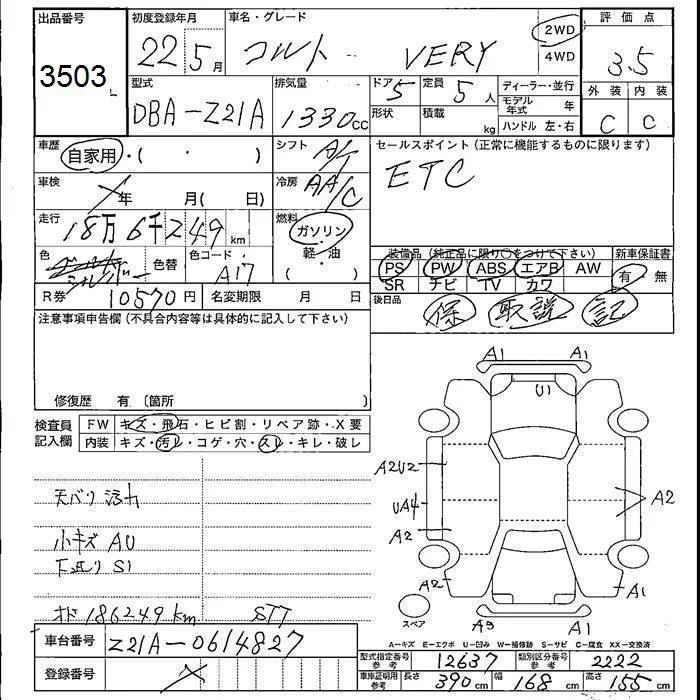 出品番号
3503
初度登録年月
22 5月
車名・グレード
コルト VERY
2WD
4WD
評価点
3.5
外装 内装
C C
型式
DBA-Z21A
排気量
1330cc
ドア 5
形状
定員 5人
積載 kg
ディーラー・並行
モデル年式 年
ハンドル 左・右
車歴
自家用・( )
シフト A/T
セールスポイント(正常に機能するものに限ります)
ETC
車検
年 月( 日)
冷房 AA/C
走行
18万6千249km
燃料
ガソリン
軽・油
色
シルバー
色替
色コード
A17
R券 10570円
名変期限 月 日
装備品(純正品に限り○をつけて下さい)
PS PW ABS エアB AW
SR ナビ TV カワ
新車保証書
有・無
後日品
保 取説 記
注意事項申告欄(不具合内容等は具体的に記入して下さい)
修復歴 有 〔箇所 〕
検査員記入欄
FW キズ・飛石・ヒビ割・リペア跡・X要
内装 キズ・汚レ・コゲ・穴・スレ・キレ・破レ
天バリ汚れ
小キズ AU
下廻り S1
オド 186249km
A1 A1
U1
A2U2
UA4
A2
A2
A2
A1
A3 A1
スペア
A−キズ E−エクボ U−凹み W−補修跡 S−サビ C−腐食 XX−交換済
車台番号 Z21A-0614827
登録番号
型式指定番号参考 12637
類別区分番号参考 2222
車庫証明用参考 長さ 390cm 幅 168cm 高さ 155cm